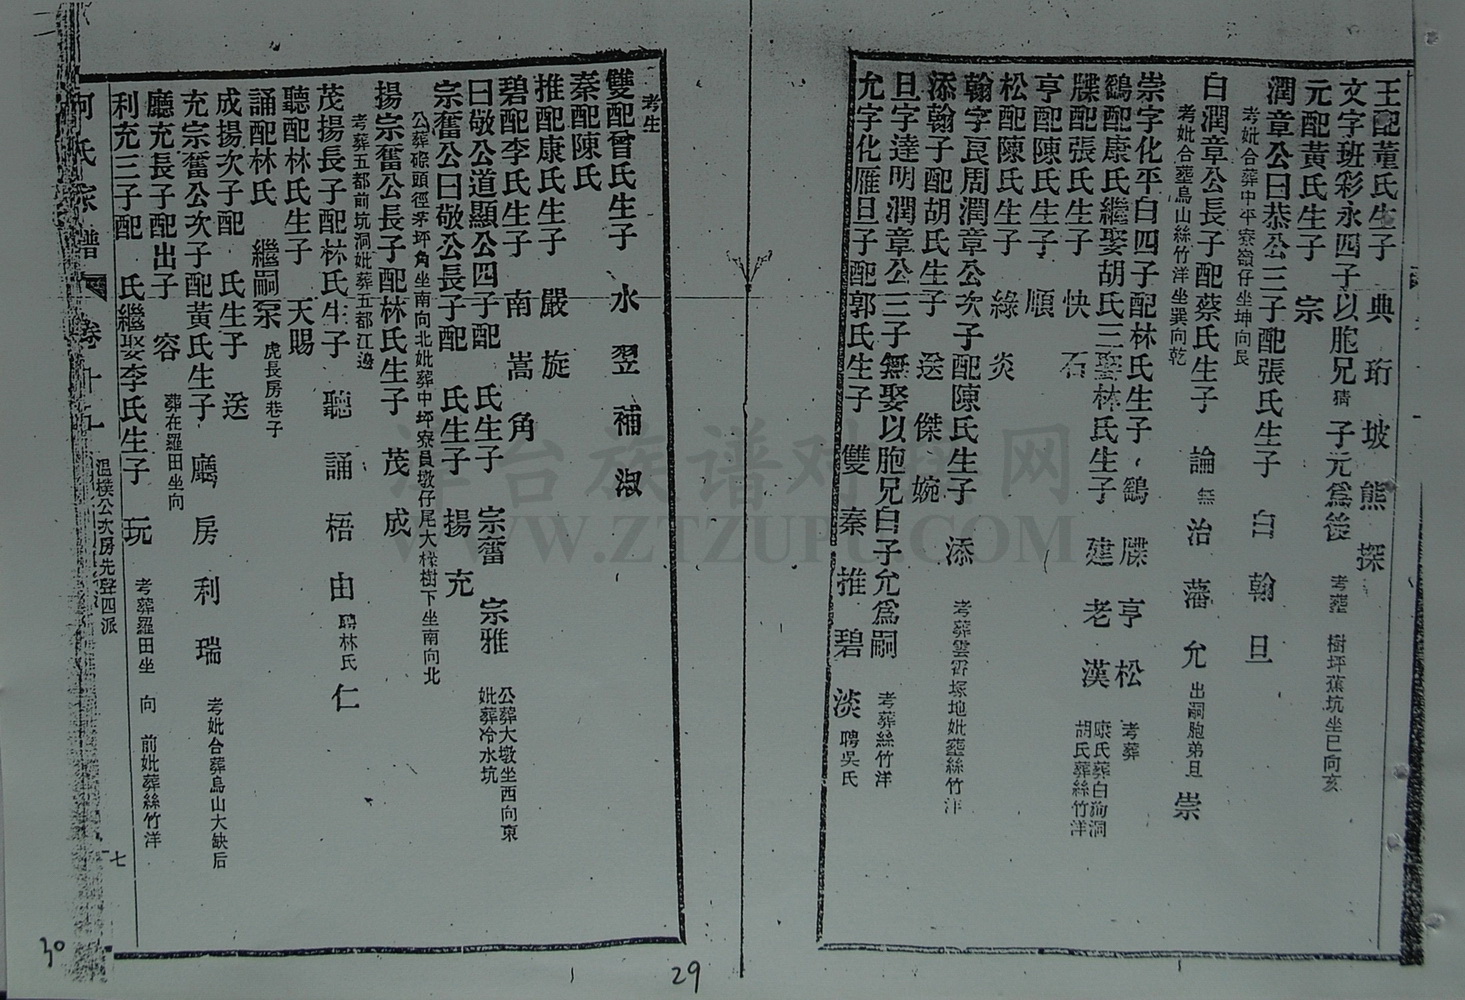 王配董氏生子　典　珩　坡　熊　探
文字班彩永四子以胞兄猜　子元為後　考葬　樹坪蕉坑坐巳向亥
元配黃氏生子　宗
潤章公曰恭公三子配張氏生子　白　翰　旦
考妣合葬中平寮嶺仔坐坤向艮
白潤章公長子配蔡氏生子　論無　治　藩　允出嗣胞弟旦　崇
考妣合葬鳥山絲竹洋坐巽向乾
崇字化平白四子配林氏生子　鶴　牒　亨　松　考葬
鶴配康氏繼娶胡氏三娶林氏生子　建　老　漢　康氏葬白狗洞胡氏葬絲竹洋
牒配張氏生子　快　石
亨配陳氏生子　順
松配陳氏生子　綠　炎
翰字良周潤章公次子配陳氏生子　添　考葬雲霄塚地妣葬絲竹洋
添翰子配胡氏生子　送　傑　婉
旦字達明潤章公三子無娶以胞兄白子允為嗣　考葬絲竹洋
允字化雁旦子配郭氏生子　雙　秦　推　碧　淡　聘吳氏
考生
雙配曾氏生子　水　翌　補　淑
秦配陳氏
推配康氏生子　嚴　旋
碧配李氏生子　南　嵩　角
曰敬公道顯公四子配　氏生子　宗奮　宗雅　公葬大墩坐西向東妣葬冷水坑
宗奮公曰敬公長子配　氏生子　揚　充
公葬磜頭徑茅坪角坐南向北妣葬中坪寮員墩仔尾大樣樹下坐南向北
揚宗奮公長子配林氏生子　茂　成
考葬五都前坑洞妣葬五都江邊
茂揚長子配林氏生子　聽　誦　梧　由聘林氏　仁
聽配林氏生子　天賜
誦配林氏　繼嗣泵　虎長房巷子
成揚次子配　氏生子　送
充宗奮公次子配黃氏生子　廳　房　利　瑞　考妣合葬鳥山大缺后
廳充長子配出子　容　葬在羅田坐向
利充三子配　氏繼娶李氏生子　玩　考葬羅田坐　向　前妣葬絲竹洋
何氏宗譜　卷十九　溫樸公次房先登四派　七
30
29
津台族谱对　网
WWW.ZTZUPU.COM